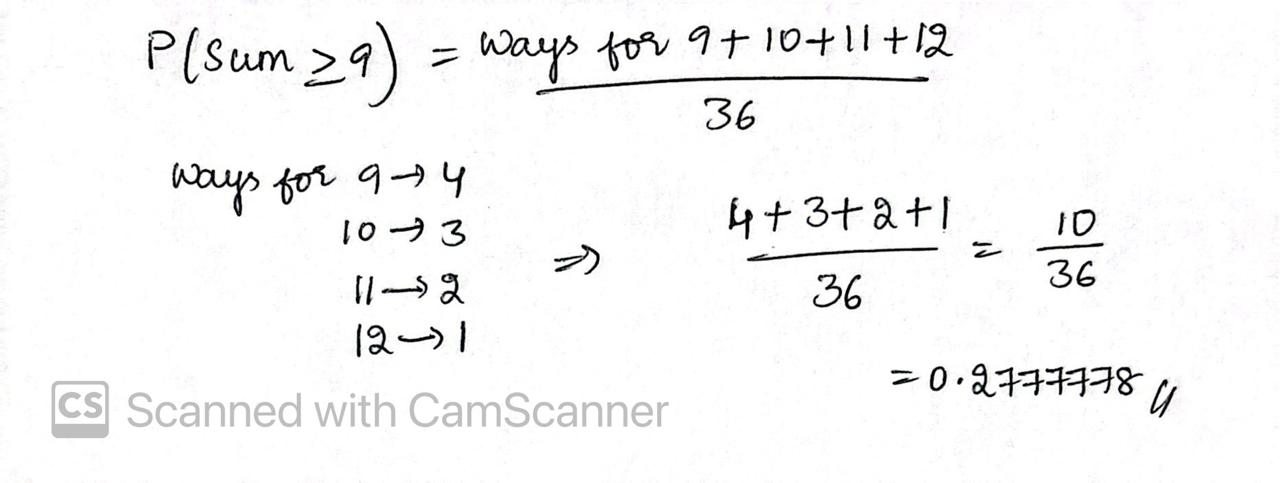 P(Sum ≥ 9) = ways for 9 + 10 + 11 + 12
36
ways for 9 → 4
10 → 3
11 → 2
12 → 1
⇒ 4 + 3 + 2 + 1 = 10
36 36
= 0.2777778
CS Scanned with CamScanner